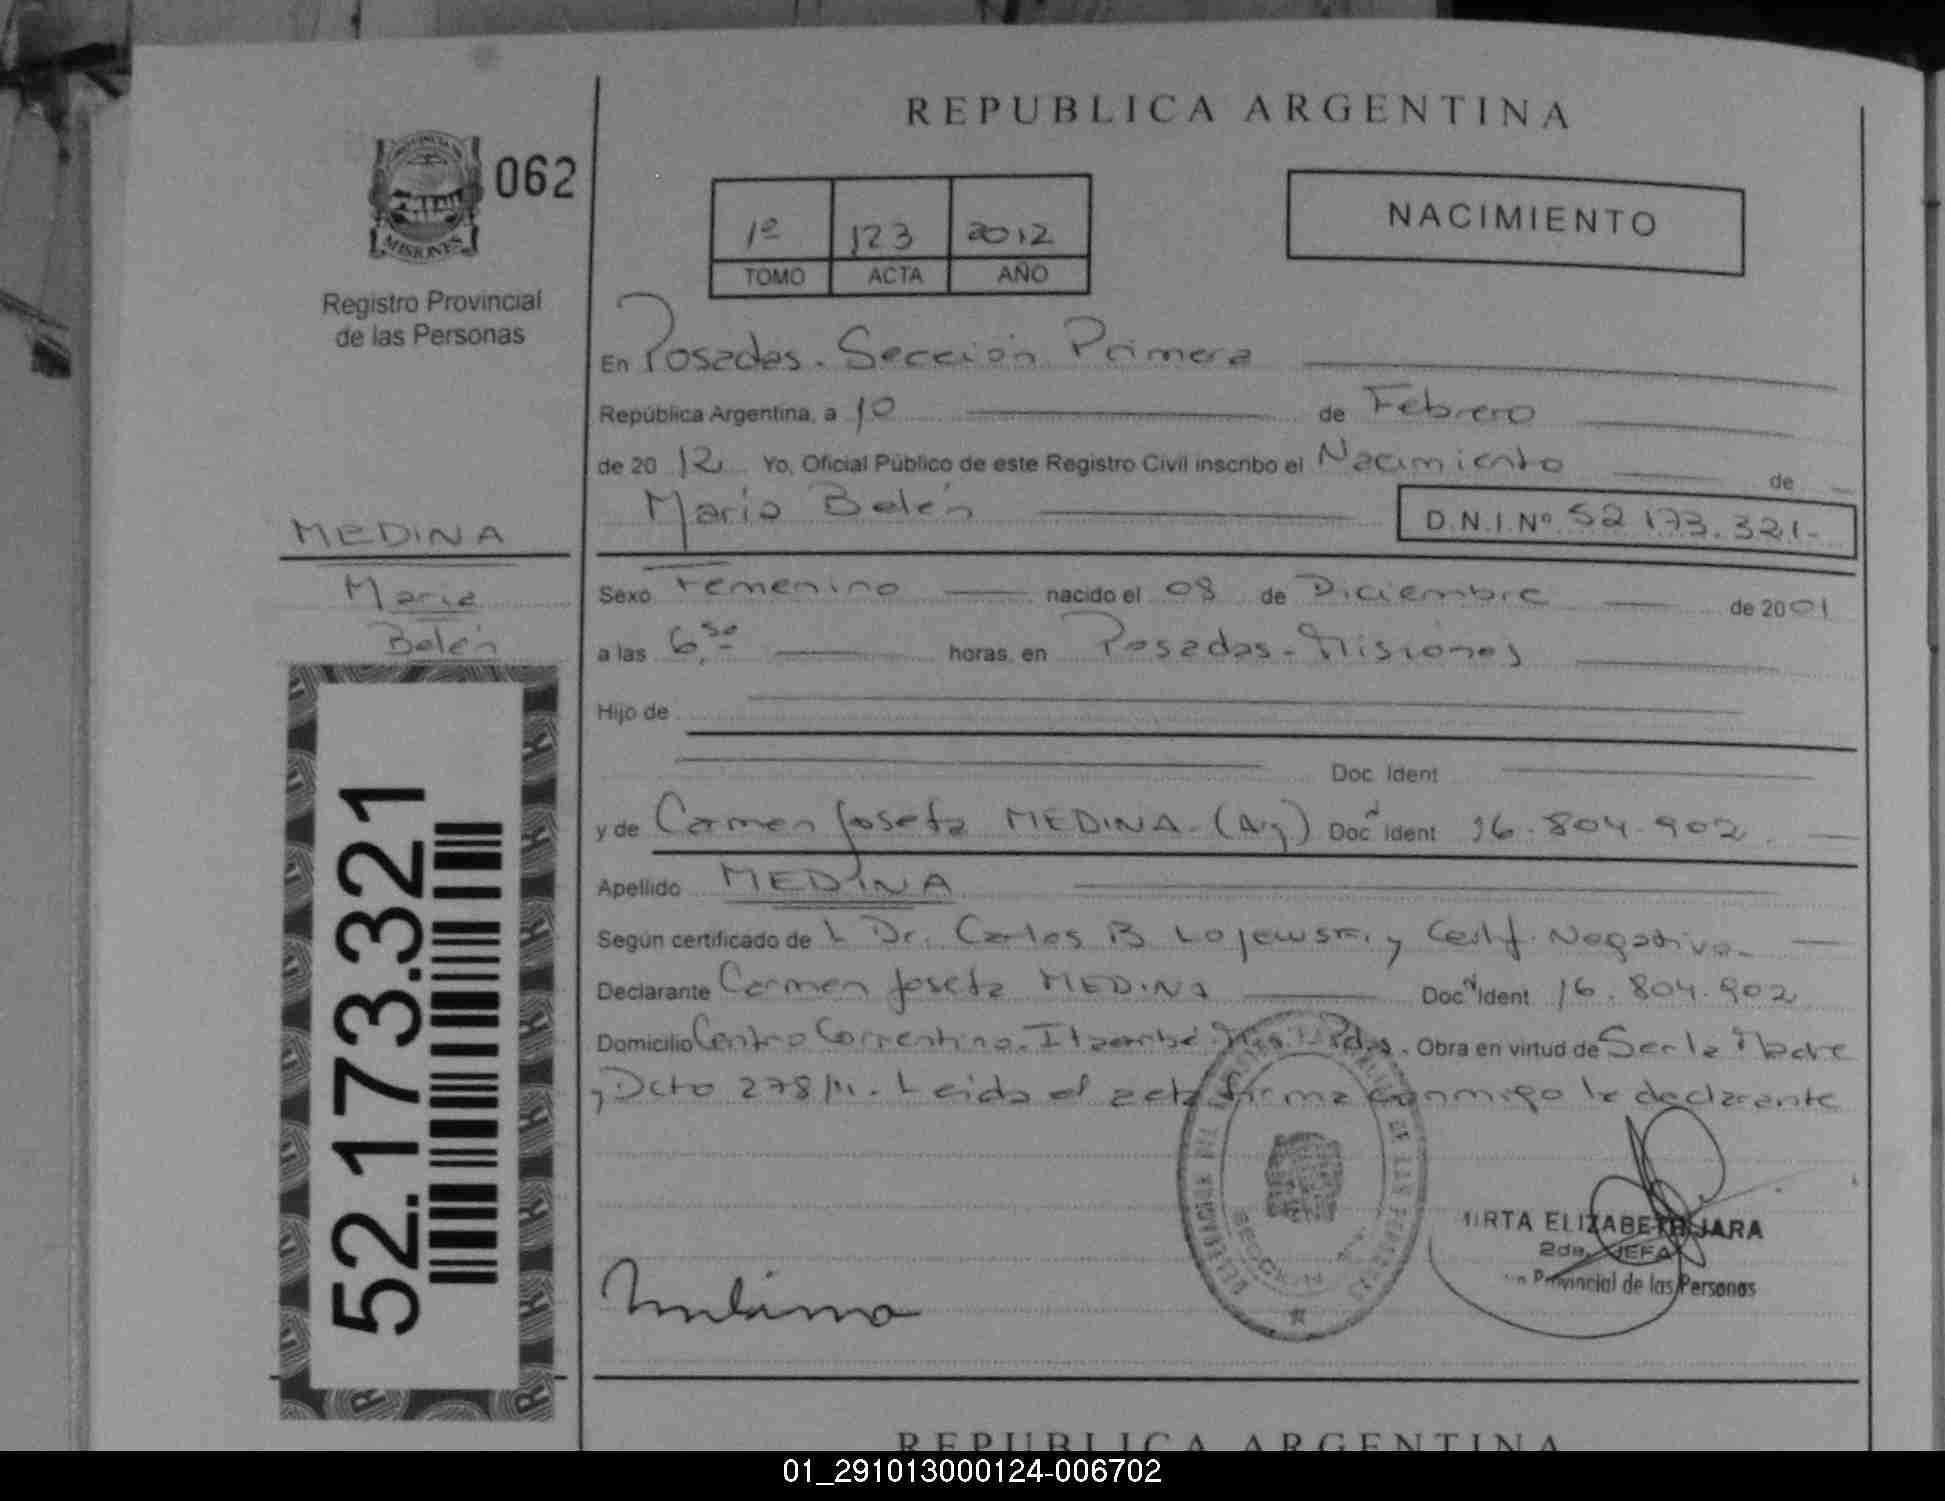 REPUBLICA ARGENTINA
062
MISIONES
Registro Provincial
de las Personas
1º 123 2012
TOMO ACTA AÑO
NACIMIENTO
En Posadas. Sección Primera
República Argentina, a 10 de Febrero
de 20 12 Yo, Oficial Público de este Registro Civil inscribo el Nacimiento de
María Belén D.N.I.Nº 52 173.321-
MEDINA
María
Belén
Sexo Femenino nacido el 08 de Diciembre de 2001
a las 6,50 horas, en Posadas - Misiones
Hijo de
Doc. Ident
y de Carmen Josefa MEDINA - (Arg) Doc Ident 16.804.902
Apellido MEDINA
Según certificado de L Dr. Carlos B Lojewski y Certf. Negativo-
Declarante Carmen Josefa MEDINA Doc Ident 16.804.902
Domicilio Centro Correntino. Itaembé Pdas. Obra en virtud de Ser la Madre
y Dcto 278/11. Leida el acta firma conmigo la declarante
52.173.321
MIRTA ELIZABETH JARA
2da. JEFA
Provincial de las Personas
REPUBLICA ARGENTINA
01_291013000124-006702